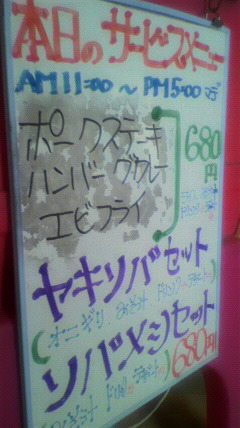 本日のサービスメニュー
AM11:00 ～ PM5:00 まで
ポークステーキ
ハンバーグカレー
エビフライ
680円
ヤキソバセット
(オニギリ
ソバメシセット
680円